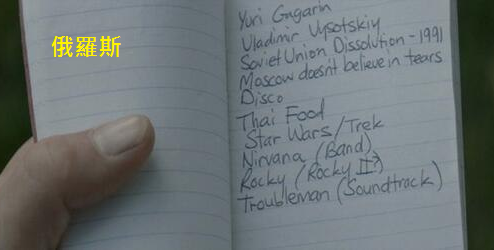 俄羅斯
Yuri Gagarin
Vladimir Vysotskiy
Soviet Union Dissolution - 1991
Moscow doesn't believe in tears
Disco
Thai Food
Star Wars/Trek
Nirvana (Band)
Rocky (Rocky II?)
Troubleman (Soundtrack)